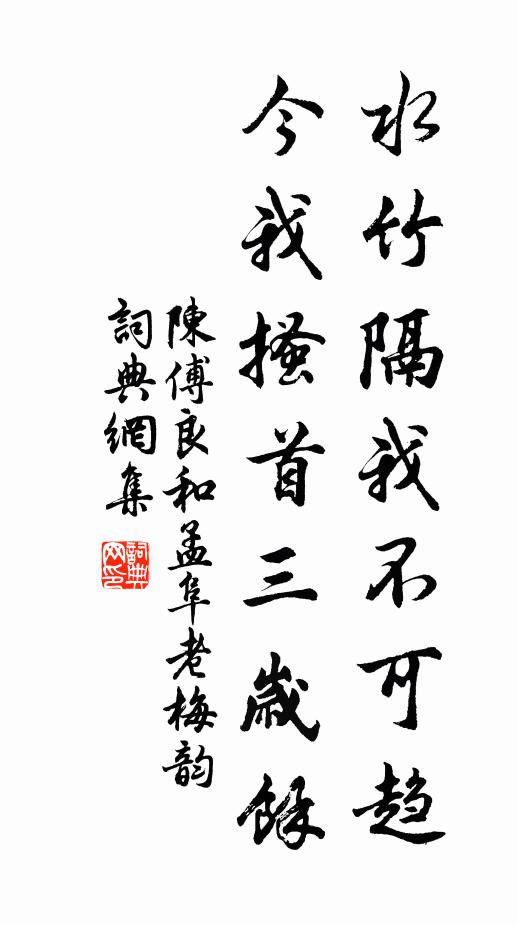 水竹隔我不可趋
今我搔首三歲餘
陳傅良和孟阜老梅韵
詞典網集
詞典
网印